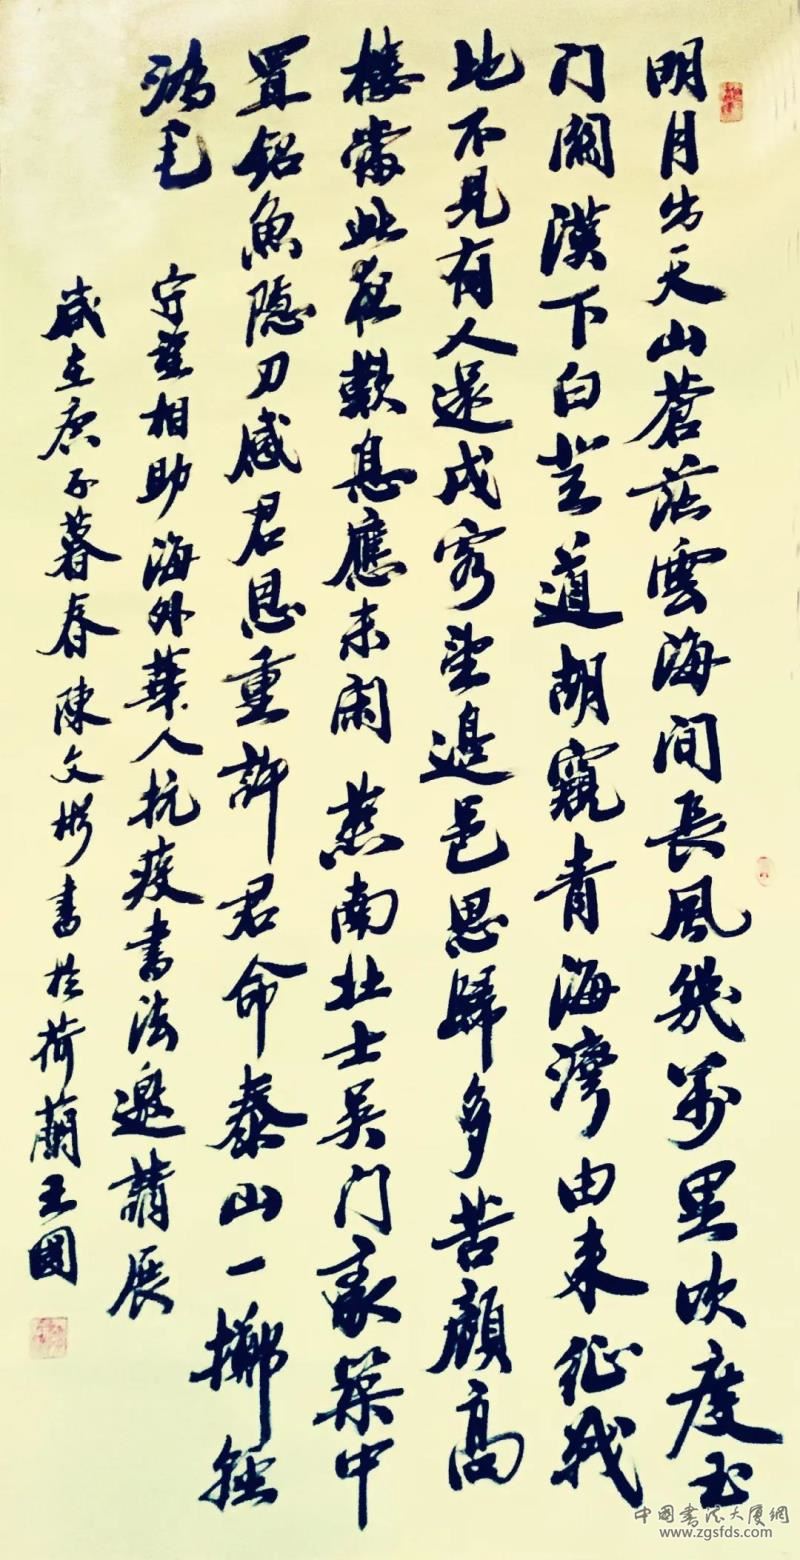 明月出天山蒼茫雲海间長風幾萬里吹度玉
门關漢下白登道胡窺青海灣由来征戰
地不見有人還戍客望邊邑思歸多苦顏高
樓當此夜歎息應未闲燕南壮士吴门豪築中
置鉛魚隐刀感君恩重許君命泰山一擲輕
鴻毛
守望相助海外華人抗疫書法邀請展
歲在庚子暮春陳文彬書於荷蘭王國
中國書法大厦網
www.zgsfds.com